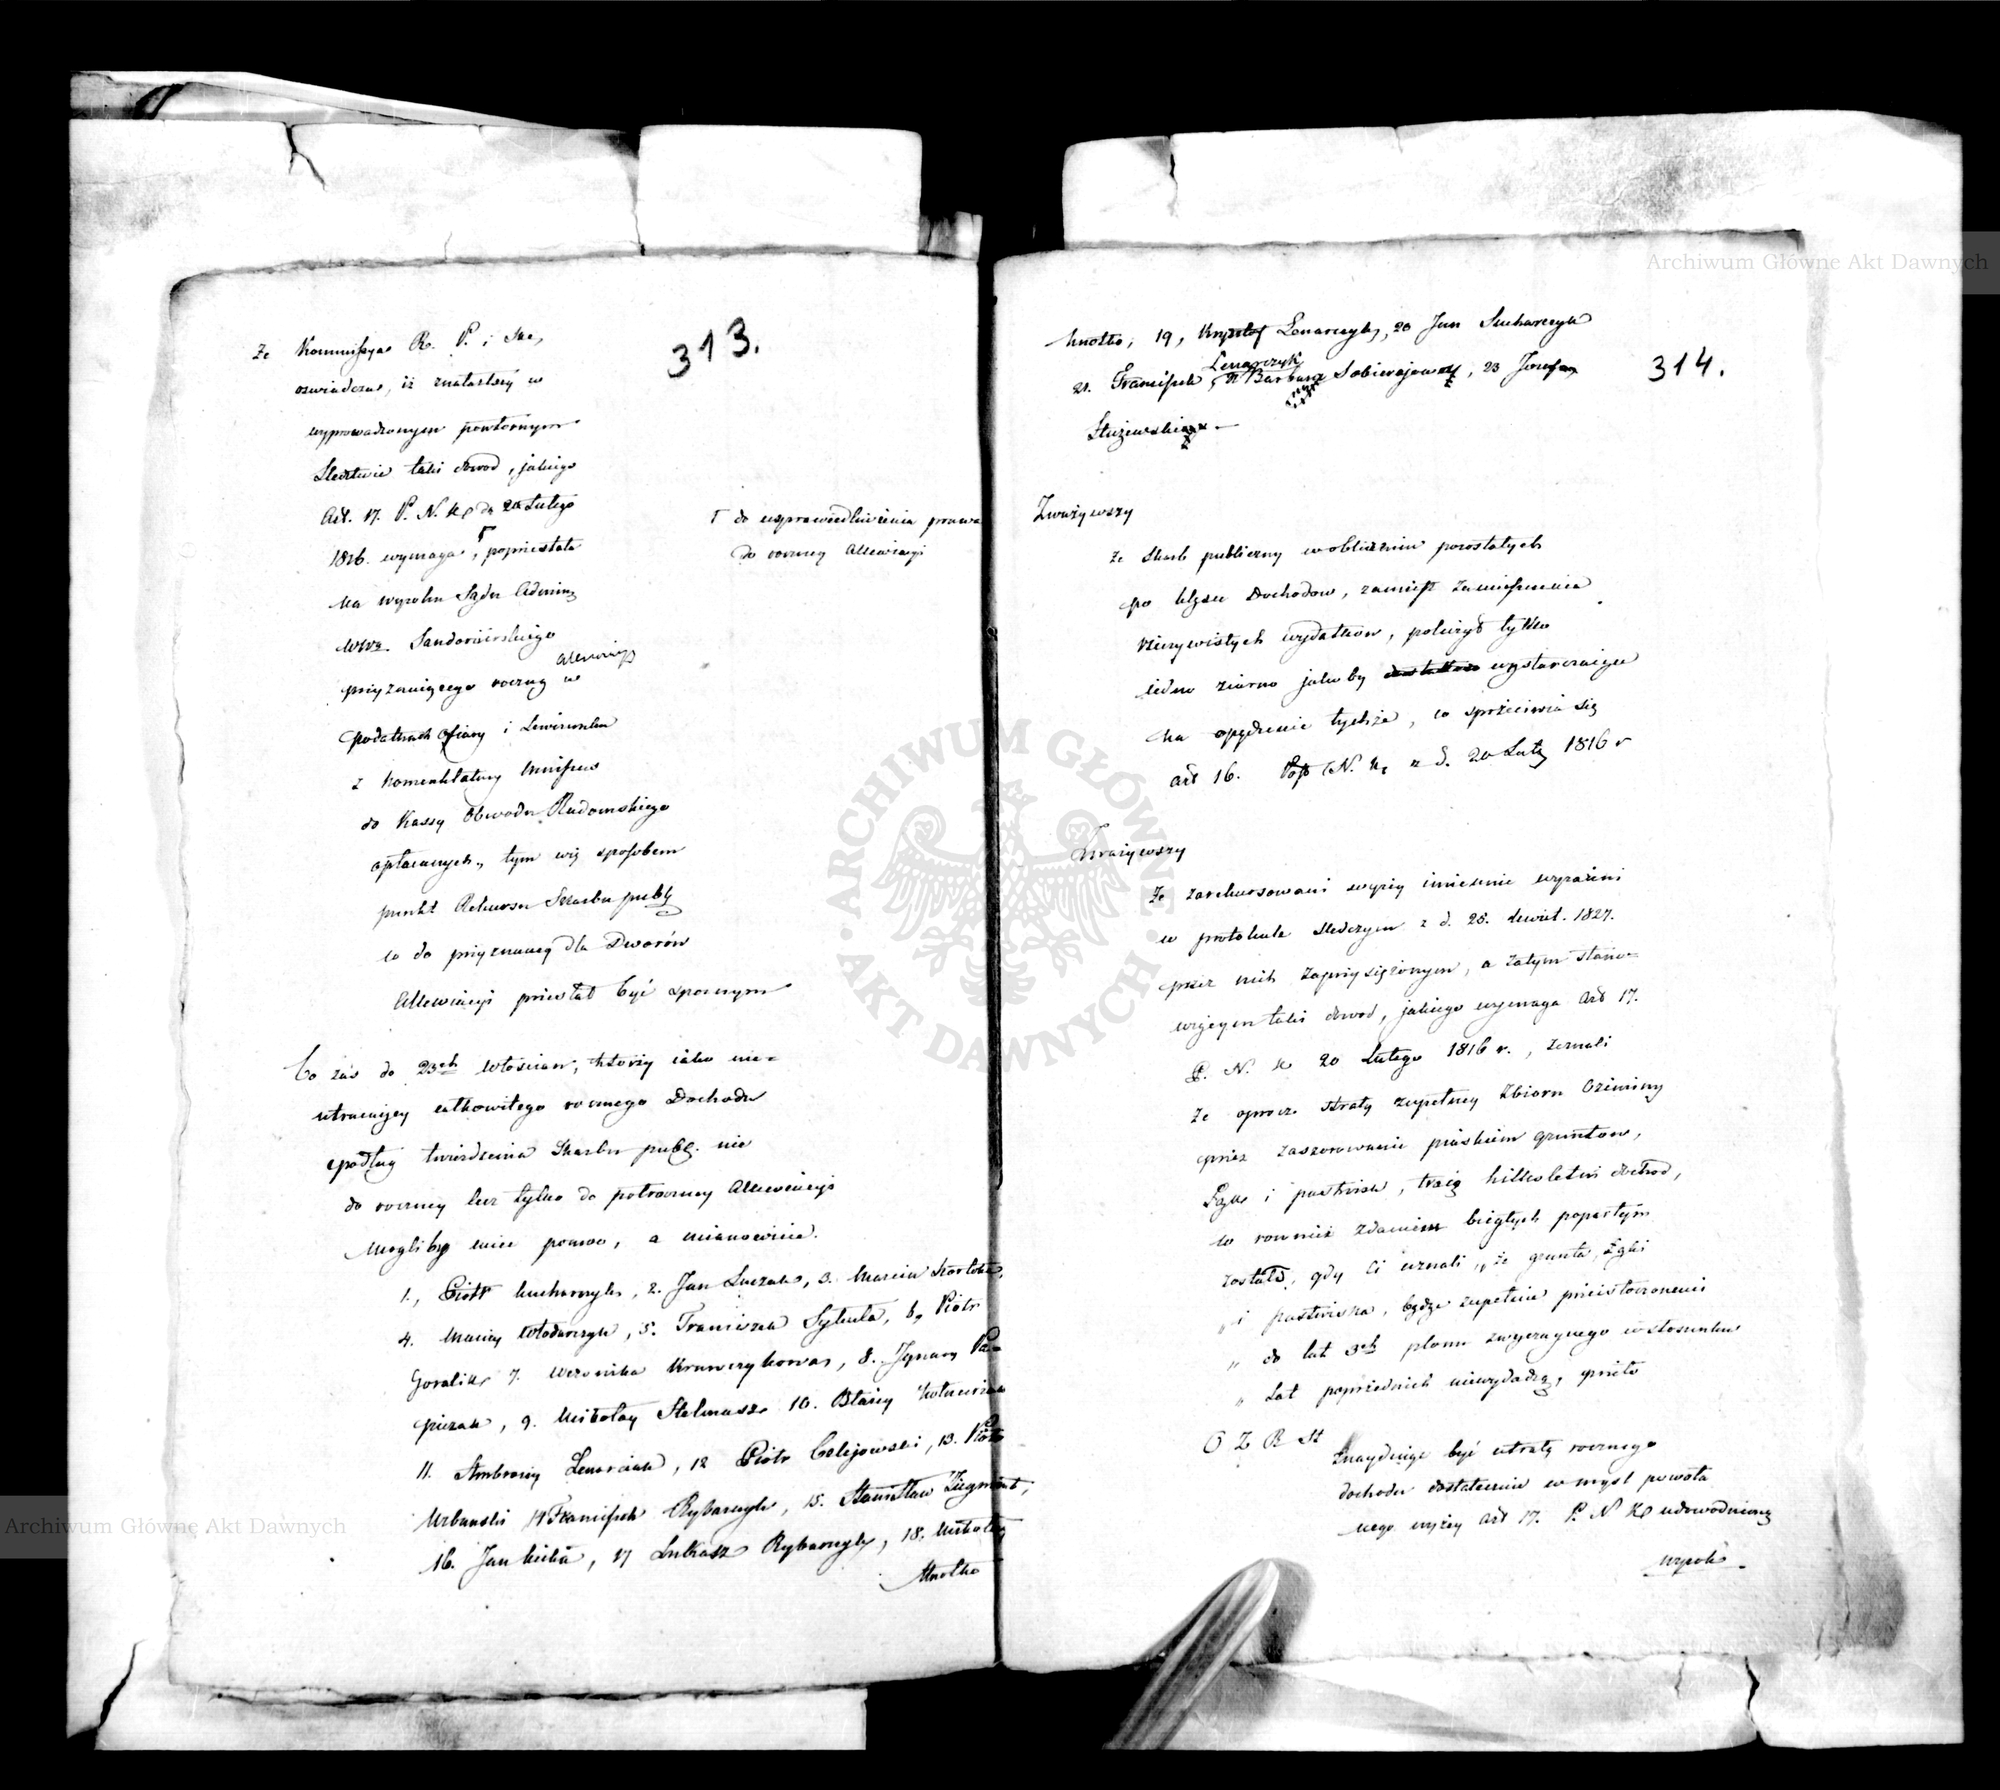 313.
że Kommissya R. P. i Ska,
oświadcza, iż znalazłszy w
wyprowadzonym powtórnym
Sledztwie taki dowod, jakiego
Art. 17. P. N. Kr. dn 20 Lutego
1816. wymaga, poprzestała
na wyroku Sądu Adminis
Wwa. Sandomirskiego
przyznaiącego roczną allewiacyą w
podatkach ofiary i Liwerunku
z Nomenklatury
do Kassy Obwodu Radomskiego
opłacanych, tym więc sposobem
punkt Rekursu Skarbu publ
co do przyznaney dla Dworów
Allewiacyi przestał być spornym
Γ do usprawiedliwienia prawa
do roczney allewiacyi
Co zaś do 23ch włościan, którzy iako nie=
utracaiący całkowitego rocznego Dochodu
podług twierdzenia Skarbu publ. nie
do roczney lecz tylko do półroczney Allewiacyi
mogliby mieć prawo, a mianowicie.
1., Piotr Kucharczyk, 2. Jan Luczak, 3. Marcin
4. Maciey Włodarczyk, 5. Franciszek Sykuła, 6, Piotr
Goralik 7. Weronika Krawczykowa, 8. Ignacy
9. Mikołay Stelmasz 10. Błażey
11. Ambroży Lenarciak, 12 Piotr Celejowski, 13. Piotr
Urbanski 14 Franciszek Rybarczyk, 15. Stanisław Ziegmunt,
16. Jan 17 Łukasz Rybarczyk, 18. Mikołay
Knotko
314.
Knotko, 19, Krysztof Lenarczyk, 20 Jan Sucharczyk
21. Franciszek Lenarczyk, 22 Barbara Sobierajow, 23 Jozef
Służewski
Zważywszy
że Skarb publiczny w obliczeniu pozostałych
po klęsce Dochodow, zamiast zamieszczenia
rzeczywistych wydatkow, położył tylko
iedno ziarno jakoby wystarczaiące
na opędzenie tychże, co sprzeciwia się
art 16. Post. N. Kr z d. 20 Lutg 1816 r
Zważywszy
że zarekursowani wyżey imiennie wyrażeni
w protokule sledczym z d. 28. kwiet. 1827.
przez nich zaprzysiężonym, a zatym stano=
wiącym taki dowod, jakiego wymaga Art 17.
P. N. Kr 20 Lutego 1816 r., zeznali
że oprocz straty zupełney Zbioru Oziminy
przez zaszorowanie piaskiem gruntow,
Łąk i pastwisk, tracą kilkoletni dochod,
co rownież zdaniem biegłych popartym
zostało, gdy ci uznali, „że grunta, łąki
„ i pastwiska, będąc zupełnie
„ do lat 3ch plonu zwyczaynego w stosunku
„ Lat poprzednich niewydadzą, przeto
O Z R St
Znayduje być utratę rocznego
dochodu dostatecznie w myśl powoła
nego wyżey Art 17. P. N Kr udowodnioną